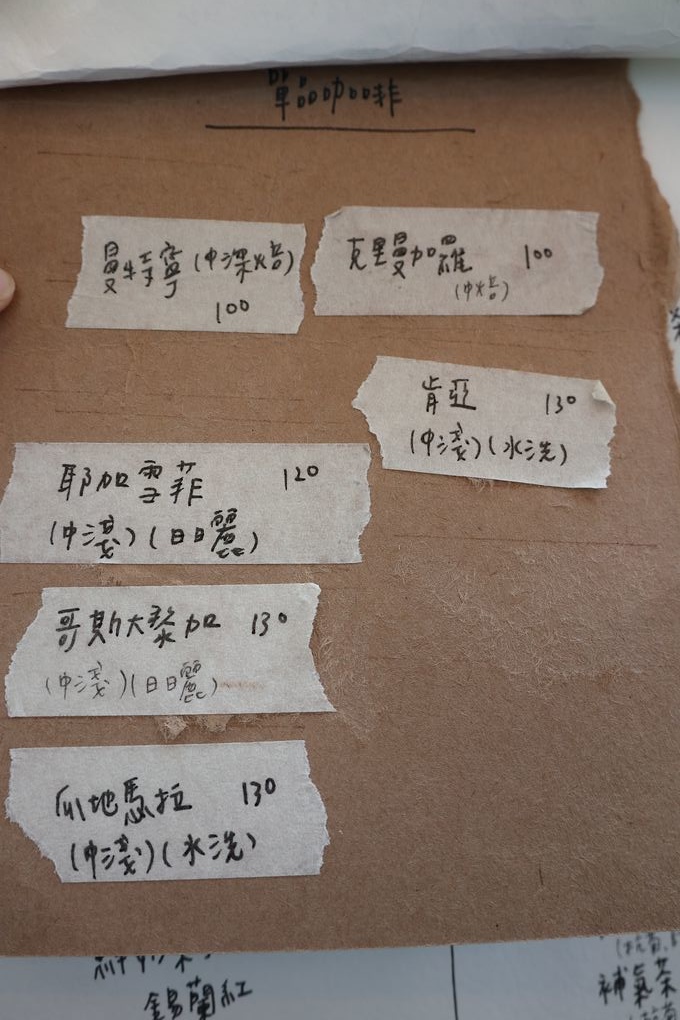 單品咖啡
曼特寧(中深焙)
100
克里曼加羅 100
(中焙)
肯亞 130
(中淺)(水洗)
耶加雪菲 120
(中淺)(日日麗)
哥斯大黎加 130
(中淺)(日日麗)
瓜地馬拉 130
(中淺)(水洗)
錫蘭紅
補氣茶